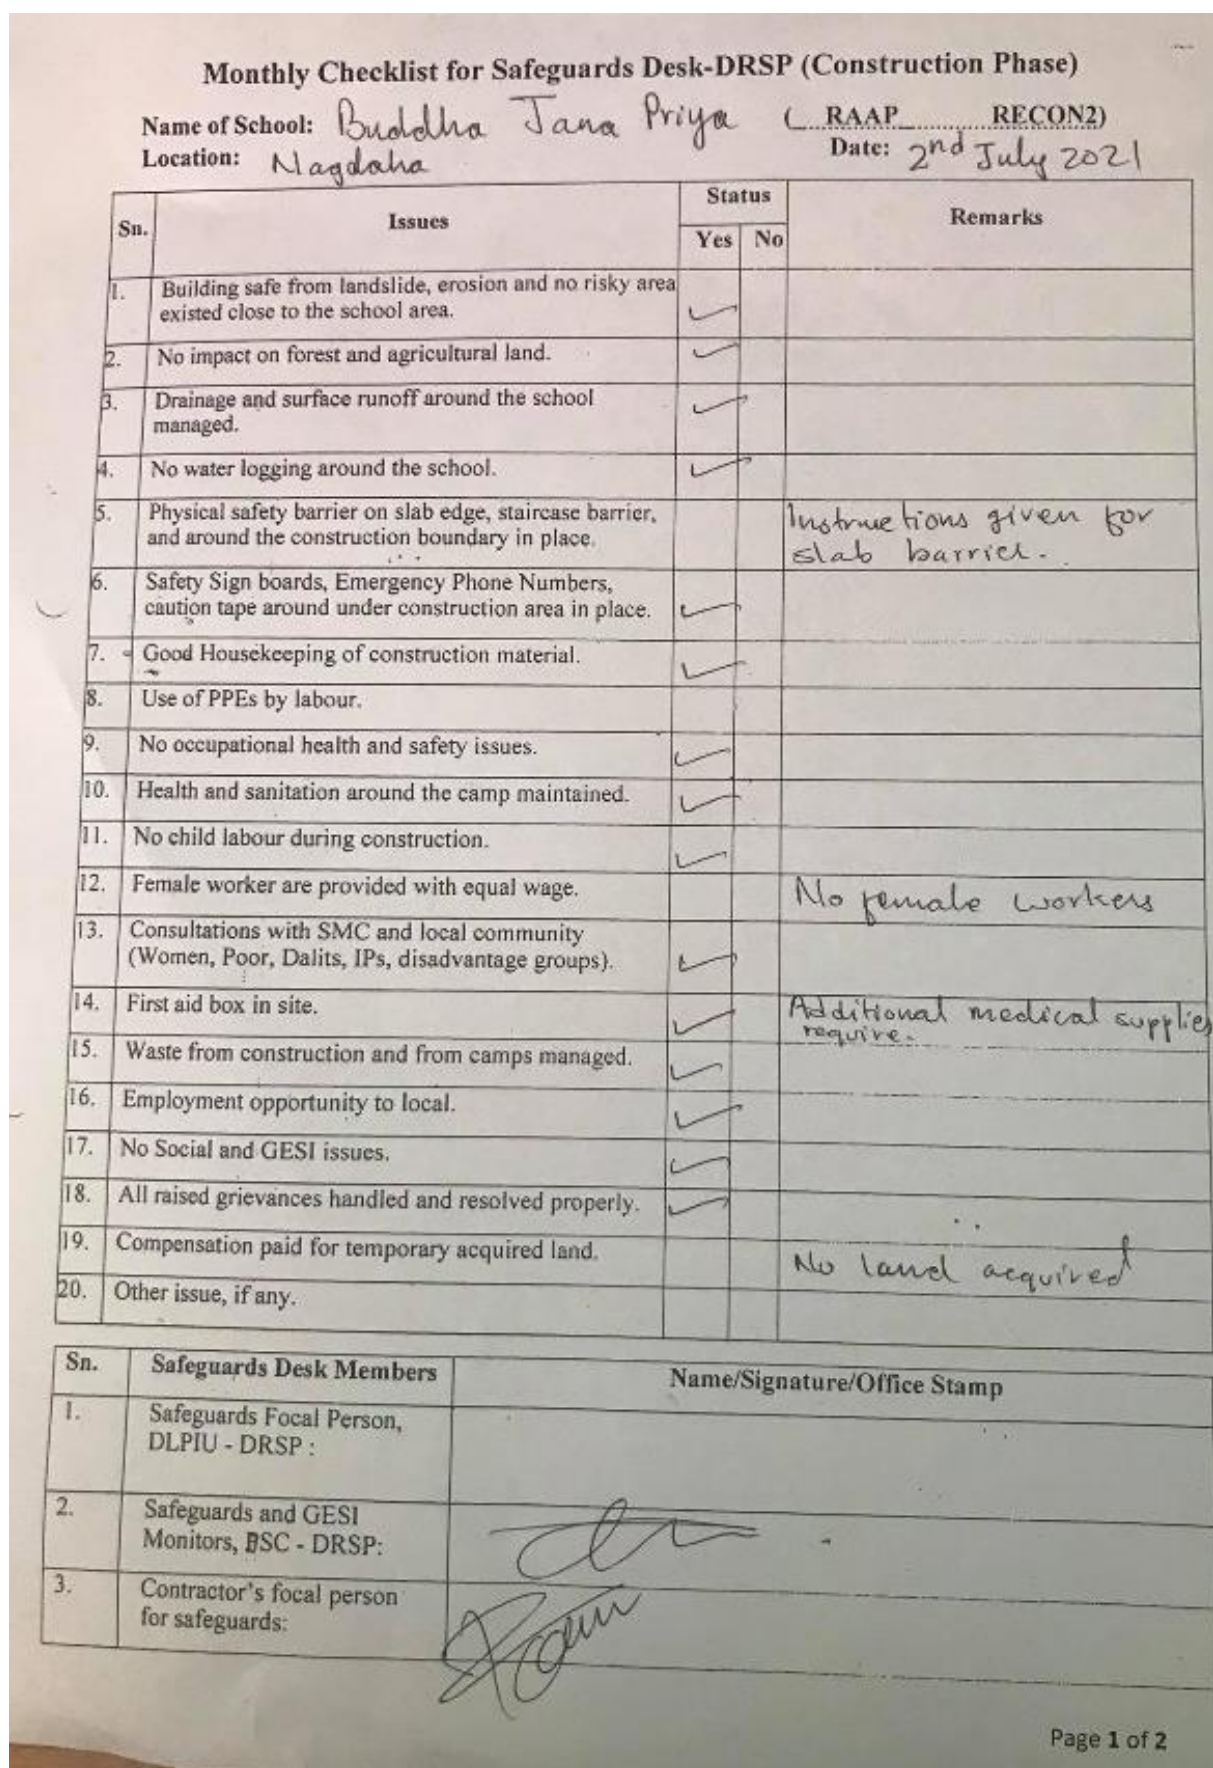 Monthly Checklist for Safeguards Desk-DRSP (Construction Phase)
Name of School: Buddha Jana Priya ( RAAP RECON2)
Location: Nagdaha Date: 2nd July 2021
Sn. Issues Status Remarks
Yes No
1. Building safe from landslide, erosion and no risky area
existed close to the school area. ✓
2. No impact on forest and agricultural land. ✓
3. Drainage and surface runoff around the school ✓
managed.
4. No water logging around the school. ✓
5. Physical safety barrier on slab edge, staircase barrier, Instructions given for
and around the construction boundary in place. slab barrier.
6. Safety Sign boards, Emergency Phone Numbers,
caution tape around under construction area in place. ✓
7. Good Housekeeping of construction material. ✓
8. Use of PPEs by labour.
9. No occupational health and safety issues. ✓
10. Health and sanitation around the camp maintained. ✓
11. No child labour during construction. ✓
12. Female worker are provided with equal wage. No female workers
13. Consultations with SMC and local community
(Women, Poor, Dalits, IPs, disadvantage groups). ✓
14. First aid box in site. ✓ Additional medical supplies
require.
15. Waste from construction and from camps managed. ✓
16. Employment opportunity to local. ✓
17. No Social and GESI issues. ✓
18. All raised grievances handled and resolved properly. ✓
19. Compensation paid for temporary acquired land. No land acquired
20. Other issue, if any.
Sn. Safeguards Desk Members Name/Signature/Office Stamp
1. Safeguards Focal Person,
DLPIU - DRSP :
2. Safeguards and GESI
Monitors, BSC - DRSP:
3. Contractor's focal person
for safeguards:
Page 1 of 2